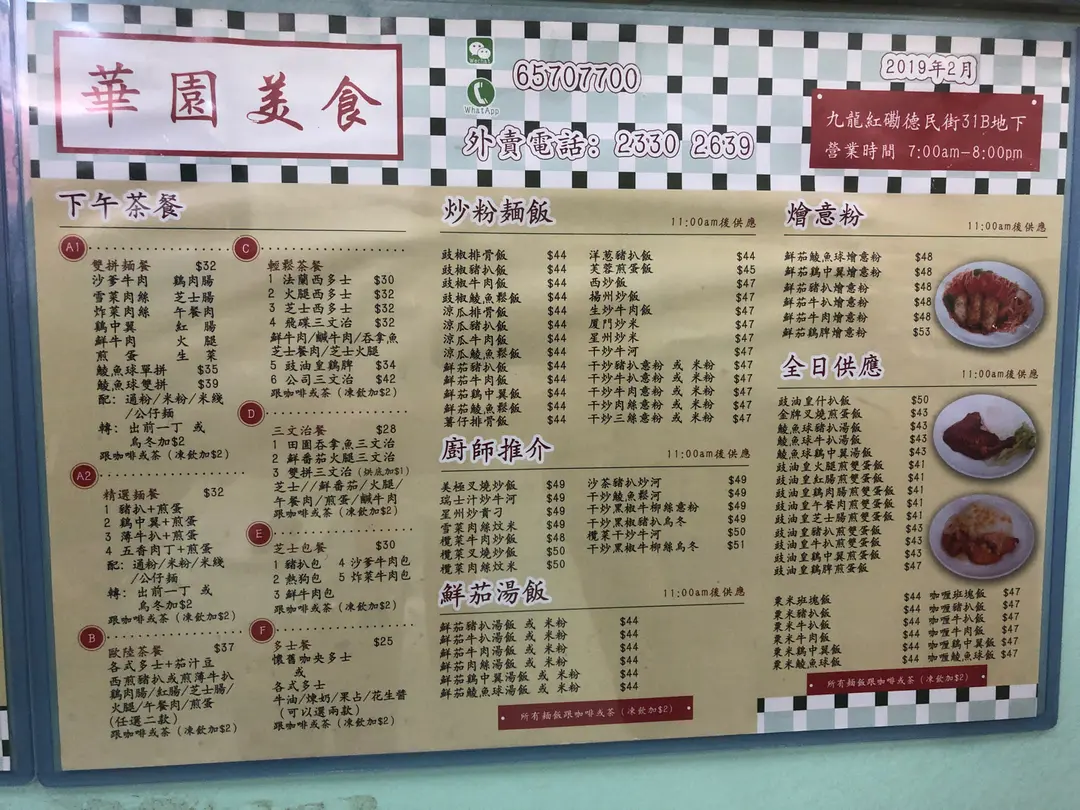 華園美食
WeChat
WhatApp
65707700
外賣電話: 2330 2639
2019年2月
九龍紅磡德民街31B地下
營業時間 7:00am-8:00pm
下午茶餐
A1
雙拼麵餐 $32
沙爹牛肉 鷄肉腸
雪菜肉絲 芝士腸
炸菜肉絲 午餐肉
鷄中翼 紅腸
鮮牛肉 火腿
煎蛋 生菜
鯪魚球單拼 $35
鯪魚球雙拼 $39
配: 通粉/米粉/米綫
/公仔麵
轉: 出前一丁 或
烏冬加$2
跟咖啡或茶(凍飲加$2)
A2
精選麵餐 $32
1 豬扒+煎蛋
2 鷄中翼+煎蛋
3 薄牛扒+煎蛋
4 五香肉丁+煎蛋
配: 通粉/米粉/米綫
/公仔麵
轉: 出前一丁 或
烏冬加$2
跟咖啡或茶(凍飲加$2)
B
歐陸茶餐 $37
各式多士+茄汁豆
西煎豬扒或煎薄牛扒
鷄肉腸/紅腸/芝士腸/
火腿/午餐肉/煎蛋
(任選二款)
跟咖啡或茶(凍飲加$2)
C
輕鬆茶餐
1 法蘭西多士 $30
2 火腿西多士 $32
3 芝士西多士 $32
4 飛碟三文治 $32
鮮牛肉/鹹牛肉/吞拿魚
芝士餐肉/芝士火腿
5 豉油皇鷄髀 $34
6 公司三文治 $42
跟咖啡或茶(凍飲加$2)
D
三文治餐 $28
1 田園吞拿魚三文治
2 鮮番茄火腿三文治
3 雙拼三文治(烘底加$1)
芝士//鮮番茄/火腿/
午餐肉/煎蛋/鹹牛肉
跟咖啡或茶(凍飲加$2)
E
芝士包餐 $30
1 豬扒包 4 沙爹牛肉包
2 熱狗包 5 炸菜牛肉包
3 鮮牛肉包
跟咖啡或茶(凍飲加$2)
F
多士餐 $25
懷舊咖央多士
或
各式多士
牛油/煉奶/果占/花生醬
(可以選兩款)
跟咖啡或茶(凍飲加$2)
炒粉麵飯 11:00am後供應
豉椒排骨飯 $44
豉椒豬扒飯 $44
豉椒牛肉飯 $44
豉椒鯪魚鬆飯 $44
涼瓜排骨飯 $44
涼瓜豬扒飯 $44
涼瓜牛肉飯 $44
涼瓜鯪魚鬆飯 $44
鮮茄豬扒飯 $44
鮮茄牛肉飯 $44
鮮茄鷄中翼飯 $44
鮮茄鯪魚鬆飯 $44
薯仔排骨飯 $44
洋蔥豬扒飯 $44
芙蓉煎蛋飯 $45
西炒飯 $47
揚州炒飯 $47
生炒牛肉飯 $47
厦門炒米 $47
星州炒米 $47
干炒牛河 $47
干炒豬扒意粉 或 米粉 $47
干炒牛扒意粉 或 米粉 $47
干炒牛肉意粉 或 米粉 $47
干炒肉絲意粉 或 米粉 $47
干炒三絲意粉 或 米粉 $47
廚師推介 11:00am後供應
美極叉燒炒飯 $49
瑞士汁炒牛河 $49
星州炒貴刁 $49
雪菜肉絲炆米 $49
欖菜牛肉炒飯 $48
欖菜叉燒炒飯 $50
欖菜肉絲炆米 $50
沙茶豬扒炒河 $49
干炒鯪魚鬆河 $49
干炒黑椒牛柳絲意粉 $49
干炒黑椒豬扒烏冬 $49
欖菜干炒牛河 $50
干炒黑椒牛柳絲烏冬 $51
鮮茄湯飯 11:00am後供應
鮮茄豬扒湯飯 或 米粉 $44
鮮茄牛扒湯飯 或 米粉 $44
鮮茄牛肉湯飯 或 米粉 $44
鮮茄肉絲湯飯 或 米粉 $44
鮮茄鷄中翼湯飯 或 米粉 $44
鮮茄鯪魚球湯飯 或 米粉 $44
所有麵飯跟咖啡或茶(凍飲加$2)
燴意粉 11:00am後供應
鮮茄鯪魚球燴意粉 $48
鮮茄鷄中翼燴意粉 $48
鮮茄豬扒燴意粉 $48
鮮茄牛扒燴意粉 $48
鮮茄牛肉燴意粉 $48
鮮茄鷄髀燴意粉 $53
全日供應 11:00am後供應
豉油皇什扒飯 $50
金牌叉燒煎蛋飯 $43
鯪魚球豬扒湯飯 $43
鯪魚球牛扒湯飯 $43
鯪魚球鷄中翼湯飯 $43
豉油皇火腿煎雙蛋飯 $41
豉油皇紅腸煎雙蛋飯 $41
豉油皇鷄肉腸煎雙蛋飯 $41
豉油皇午餐肉煎雙蛋飯 $41
豉油皇芝士腸煎雙蛋飯 $41
豉油皇豬扒煎蛋飯 $43
豉油皇牛扒煎蛋飯 $43
豉油皇鷄中翼煎蛋飯 $43
豉油皇鷄髀煎蛋飯 $47
粟米班塊飯 $44
粟米豬扒飯 $44
粟米牛扒飯 $44
粟米牛肉飯 $44
粟米鷄中翼飯 $44
粟米鯪魚球飯 $44
咖喱班塊飯 $47
咖喱豬扒飯 $47
咖喱牛扒飯 $47
咖喱牛肉飯 $47
咖喱鷄中翼飯 $47
咖喱鯪魚球飯 $47
所有麵飯跟咖啡或茶(凍飲加$2)